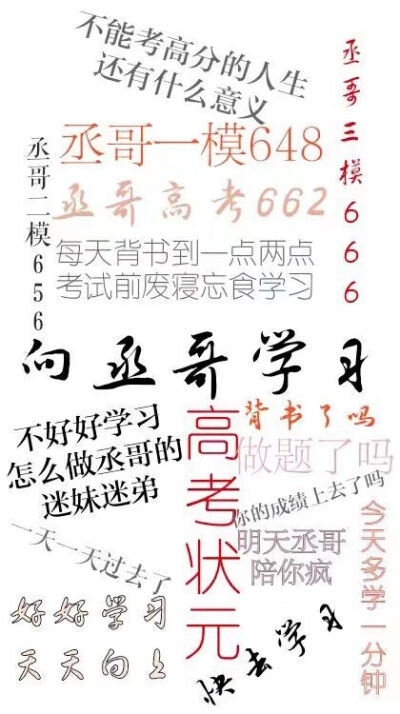 不能考高分的人生
还有什么意义
丞哥三模666
丞哥一模648
丞哥二模656
丞哥高考662
每天背书到一点两点
考试前废寝忘食学习
向丞哥学习
不好好学习
怎么做丞哥的
迷妹迷弟
高考状元
背书了吗
做题了吗
你的成绩上去了吗
一天一天过去了
明天丞哥
陪你疯
今天多学一分钟
好好学习
天天向上
快去学习